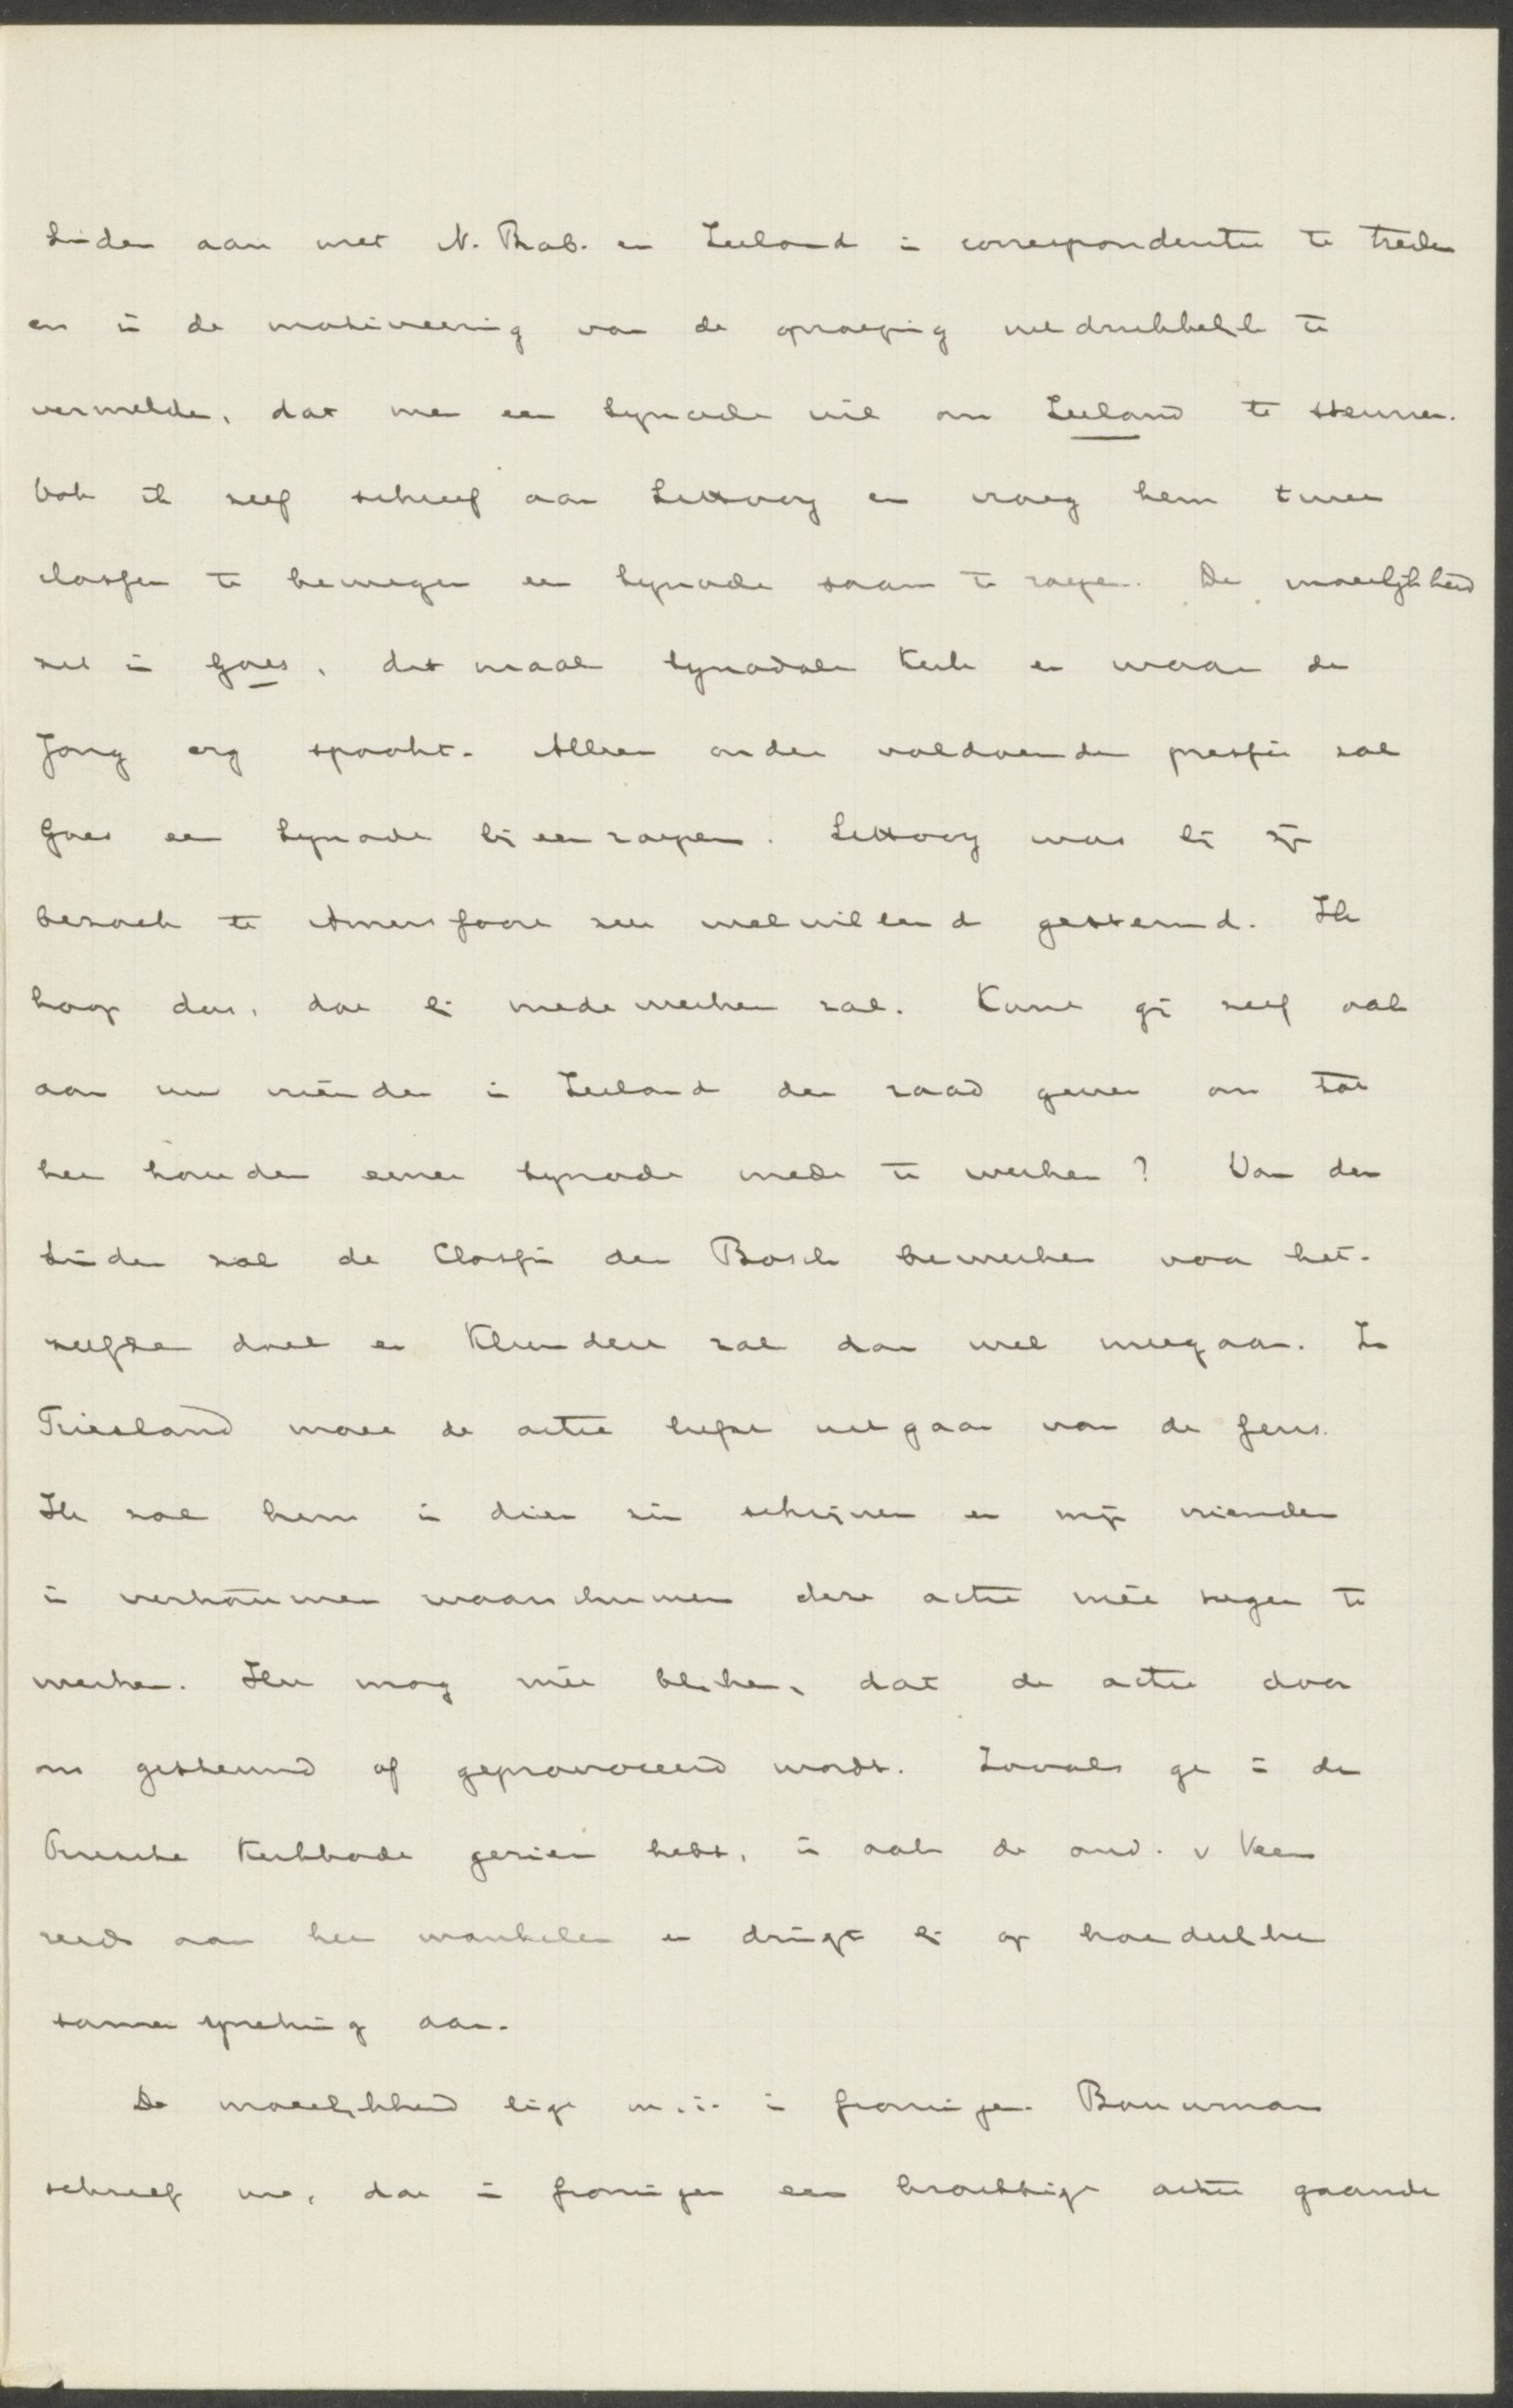 Linden aan met N. Brab. en Zeeland in correspondentie te treden
en in de motiveering van de oproeping uitdrukkelijk te
vermelden, dat men een Synode wil om Zeeland te steunen.
Ook ik zelf schreef aan Littooy en vroeg hem twee
classen te bewegen een Synode saam te roepen. De moeilijkheid
zit in Goes, dit maal synodale Kerk en waar de
Jong erg spookt. Alleen onder voldoende pressie zal
Goes een Synode bijeenroepen. Littooy was bij zijn
bezoek te Amersfoort zeer welwillend gestemd. Ik
hoop dus, dat hij medewerken zal. Kunt gij zelf ook
aan uw vrienden in Zeeland den raad geven om tot
het houden eener Synode mede te werken? Van der
Linden zal de Classis den Bosch bewerken voor het-
zelfde doel en Klundert zal dan wel meegaan. In
Friesland moet de actie liefst uitgaan van de Geus.
Ik zal hem in dien zin schrijven en mijn vrienden
in vertrouwen waarschuwen deze actie niet tegen te
werken. Het mag niet blijken, dat de actie door
ons gesteund of geprovoceerd wordt. Zooals ge in de
Friesche Kerkbode gezien hebt, is ook de oud. v Veen
reeds aan het wankelen en dringt hij op broederlijke
samenspreking aan.
De moeilijkheid ligt m.i. in Groningen. Bouwman
schreef me, dat in Groningen een krachtige actie gaande